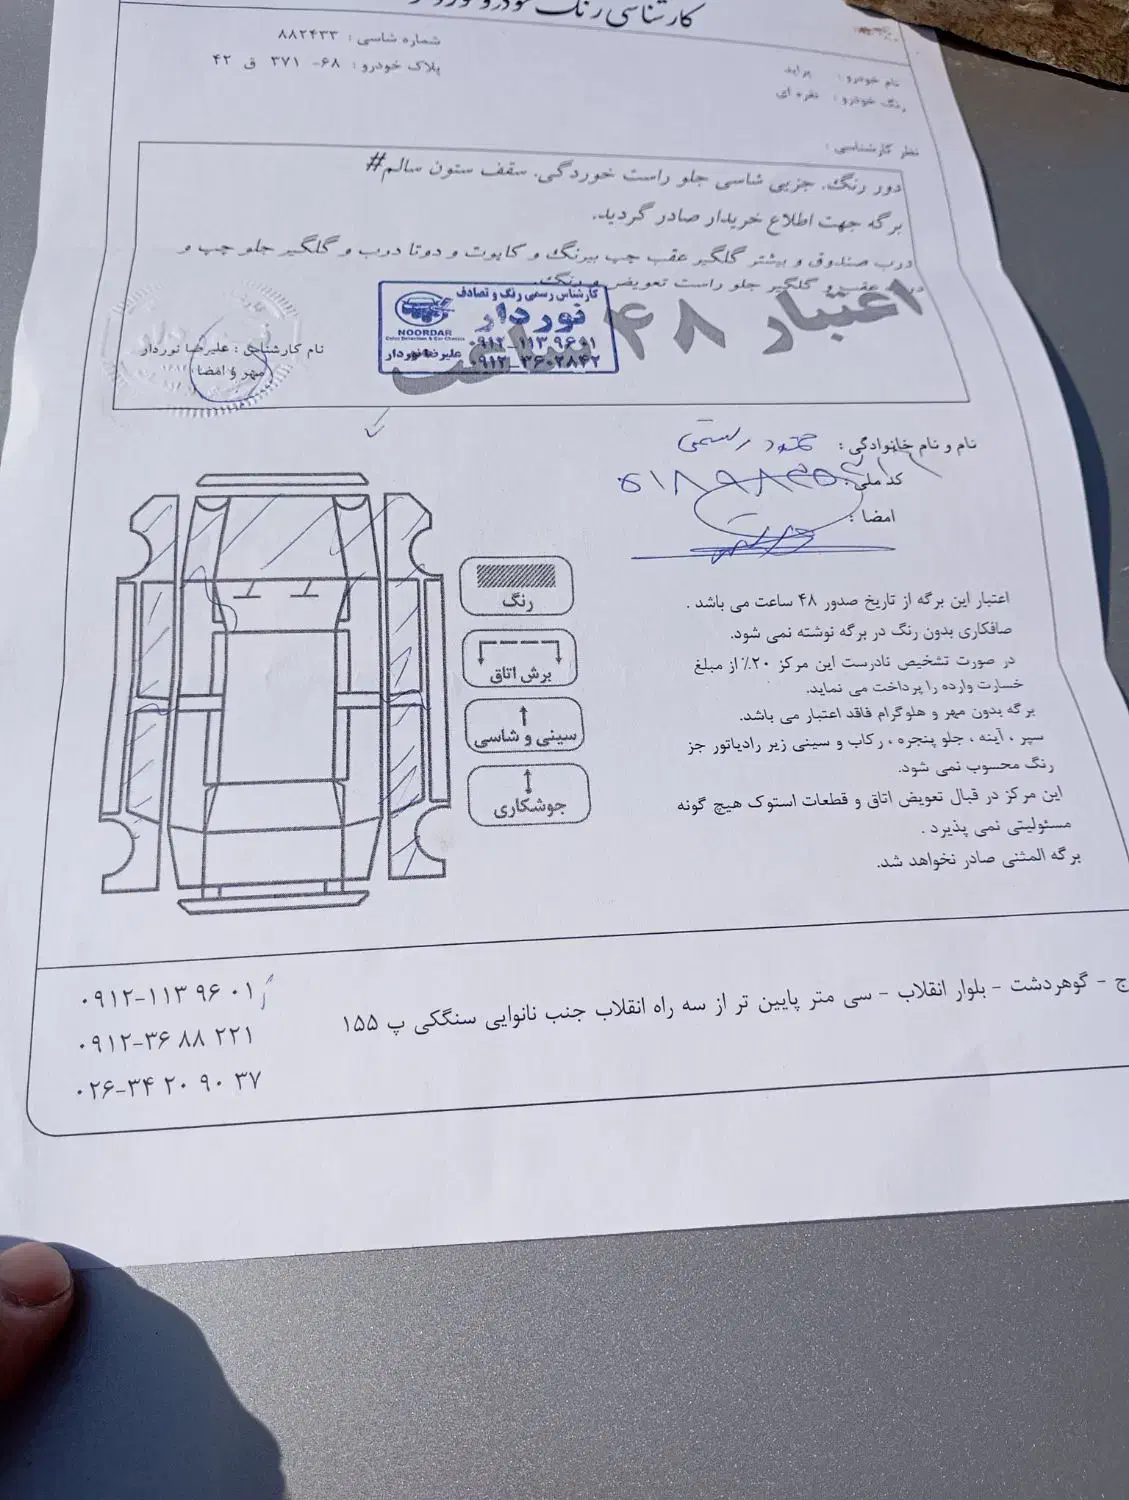 کارشناسی رنگ خودرو
شماره شاسی : ۸۸۲۴۳۳
پلاک خودرو : ۶۸- ۳۷۱ ق ۴۲
نام خودرو : پراید
رنگ خودرو : نقره ای
نظر کارشناسی :
دور رنگ. جزیی شاسی جلو راست خوردگی. سقف ستون سالم#
برگه جهت اطلاع خریدار صادر گردید.
درب صندوق و بیشتر گلگیر عقب چپ بیرنگ و کاپوت و دوتا درب و گلگیر جلو چپ و
عقب و گلگیر جلو راست تعویض و رنگ.
اعتبار ۴۸ ساعت
کارشناس رسمی رنگ و تصادف
نوردار
NOORDAR
Color Detection & Car Checks
۰۹۱۲-۱۱۳۹۶۰۱
علیرضا نوردار
۰۹۱۲-۳۶۰۲۸۴۲
نام کارشناس : علیرضا نوردار
مهر و امضا :
نام و نام خانوادگی : رستمی
کد ملی :
امضا :
رنگ
برش اتاق
سینی و شاسی
جوشکاری
اعتبار این برگه از تاریخ صدور ۴۸ ساعت می باشد .
صافکاری بدون رنگ در برگه نوشته نمی شود.
در صورت تشخیص نادرست این مرکز ۲۰٪ از مبلغ
خسارت وارده را پرداخت می نماید.
برگه بدون مهر و هلوگرام فاقد اعتبار می باشد.
سپر ، آینه ، جلو پنجره ، رکاب و سینی زیر رادیاتور جز
رنگ محسوب نمی شود.
این مرکز در قبال تعویض اتاق و قطعات استوک هیچ گونه
مسئولیتی نمی پذیرد .
برگه المثنی صادر نخواهد شد.
ج - گوهردشت - بلوار انقلاب - سی متر پایین تر از سه راه انقلاب جنب نانوایی سنگکی پ ۱۵۵
۰۹۱۲-۱۱۳ ۹۶ ۰۱
۰۹۱۲-۳۶ ۸۸ ۲۲۱
۰۲۶-۳۴ ۲۰ ۹۰ ۳۷